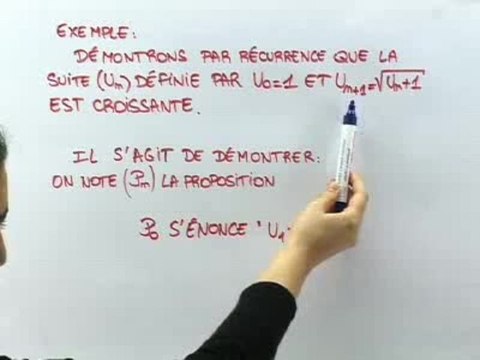 EXEMPLE:
DÉMONTRONS PAR RÉCURRENCE QUE LA
SUITE (Um) DÉFINIE PAR U0=1 ET Um+1=√Um+1
EST CROISSANTE.
IL S'AGIT DE DÉMONTRER:
ON NOTE (Pm) LA PROPOSITION
P0 S'ÉNONCE " U1